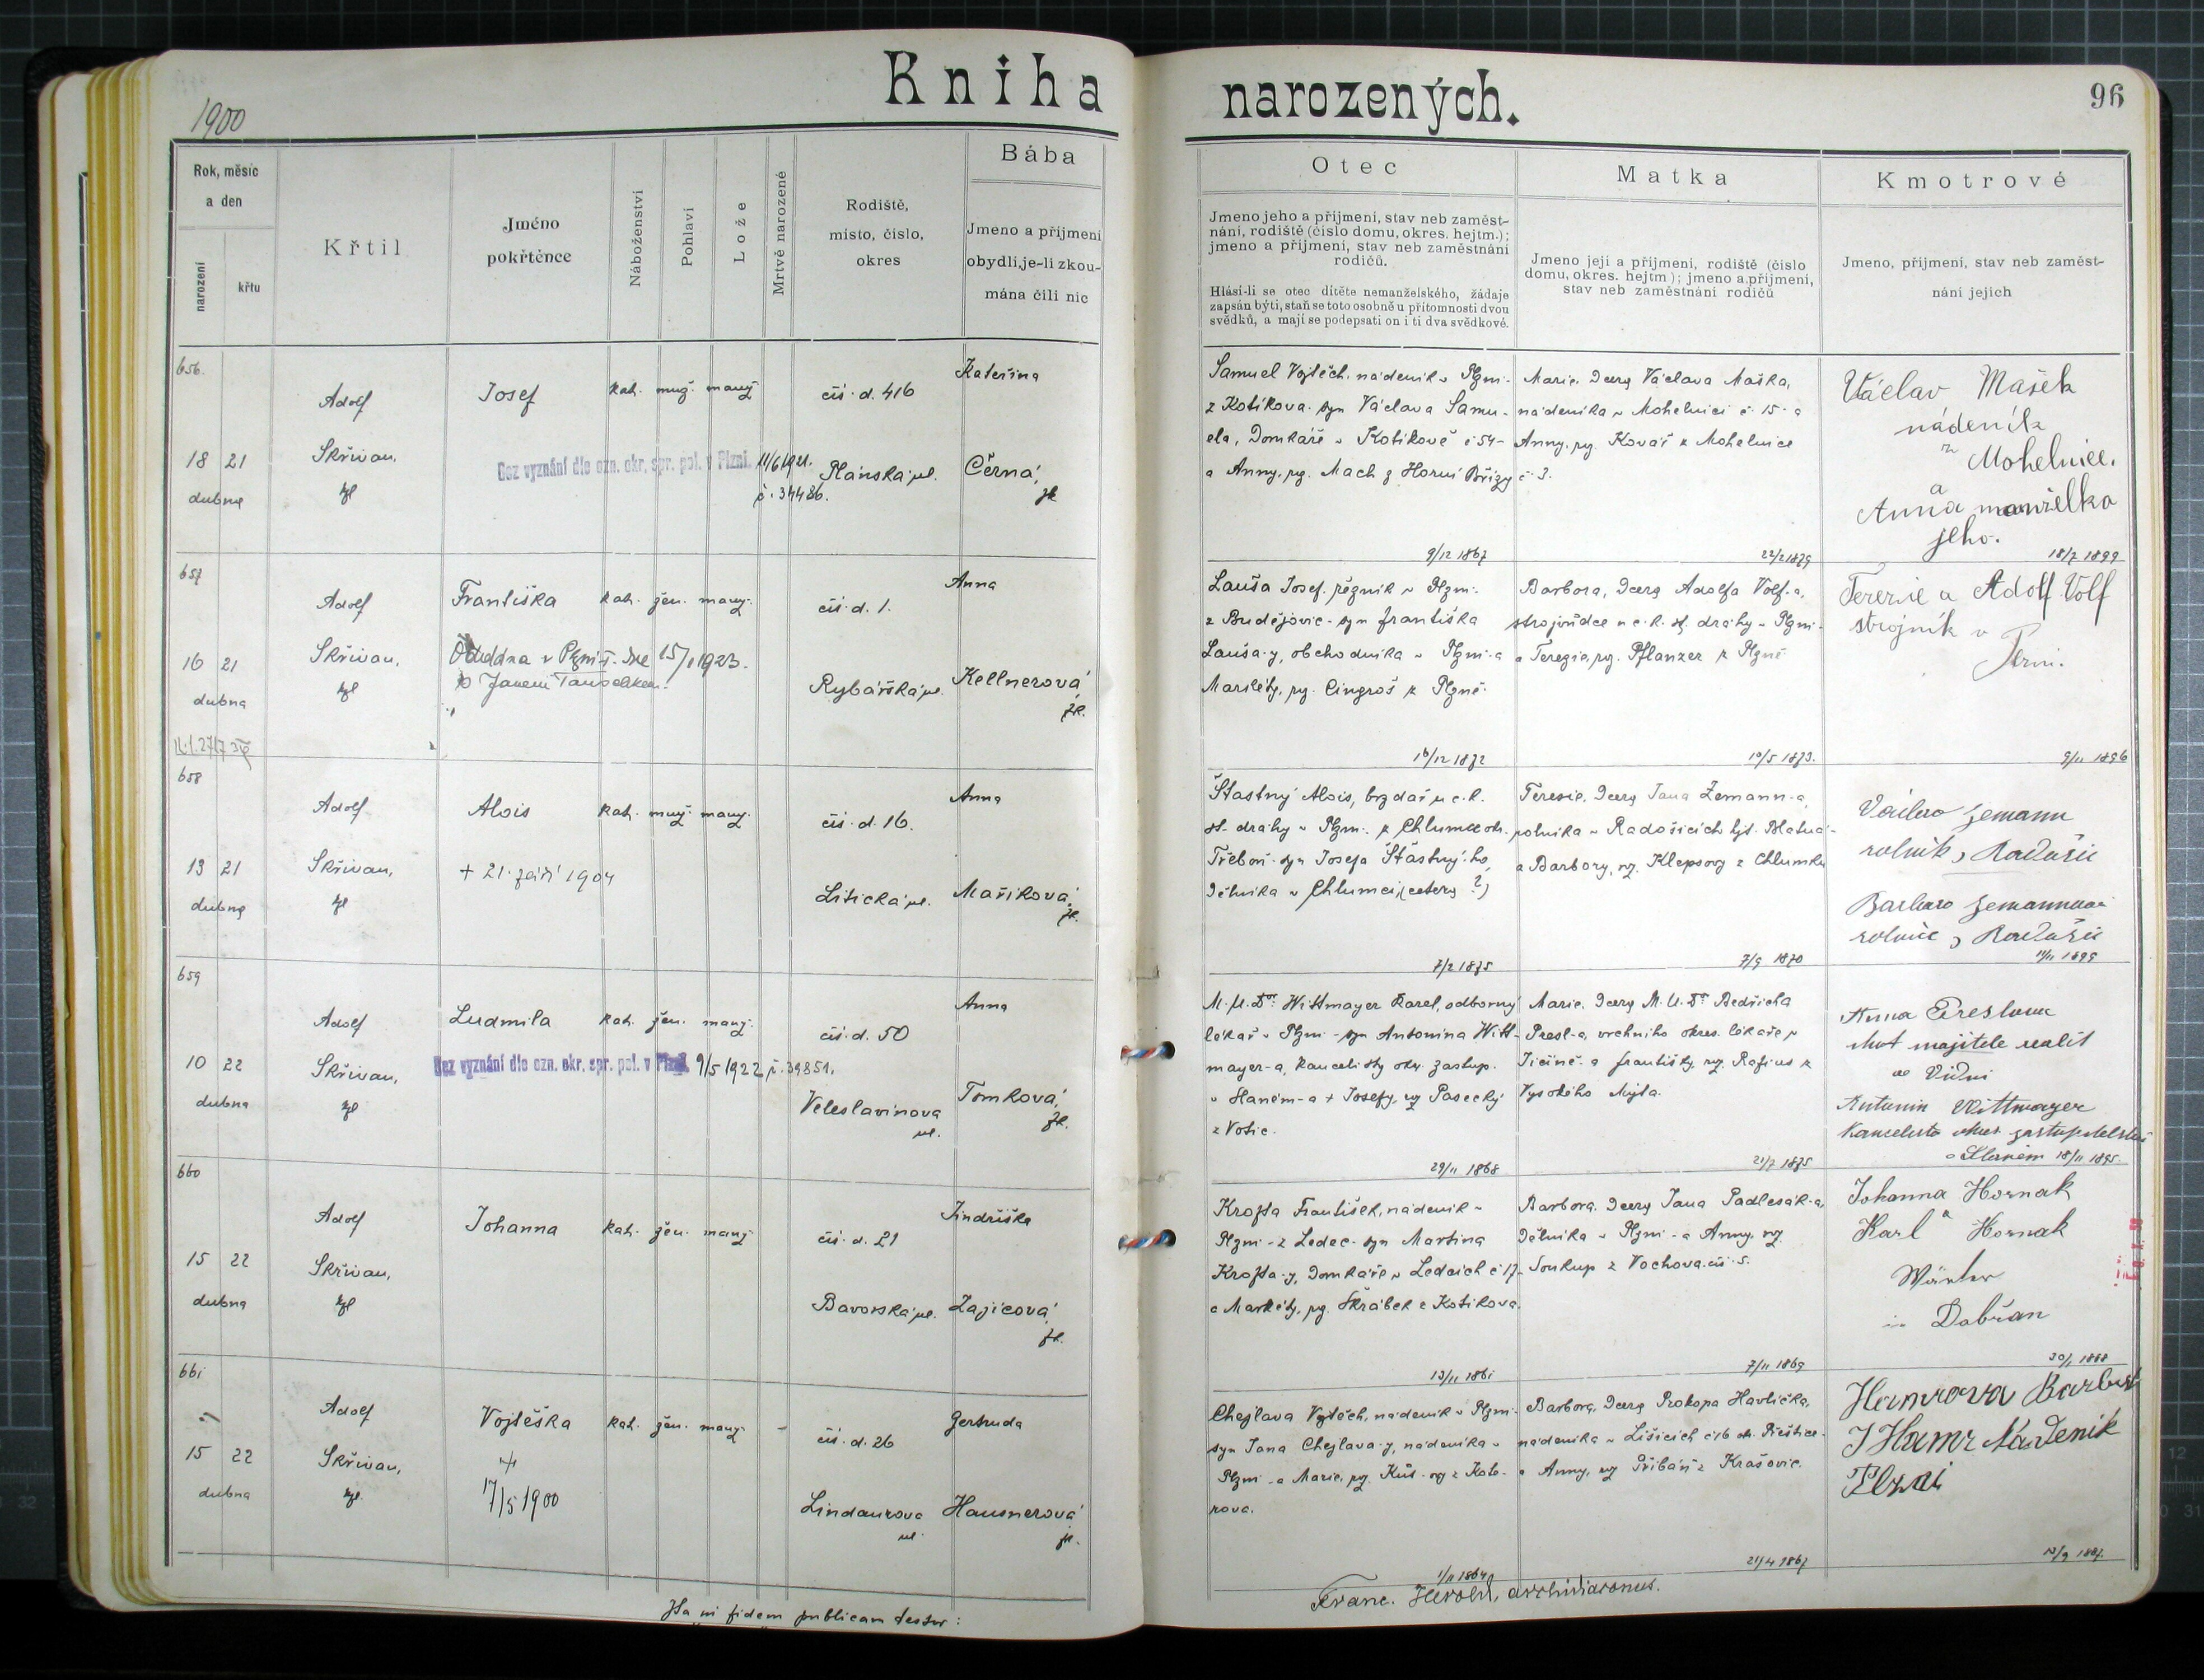 Kniha narozených.
96
1900
Rok, měsíc
a den
narození
křtu
Křtil
Jméno
pokřtěnce
Náboženství
Pohlaví
Lože
Mrtvě narozené
Rodiště,
místo, číslo,
okres
Bába
Jmeno a příjmení
obydlí, je-li zkou-
mána čili nic
Otec
Jmeno jeho a příjmení, stav neb zaměst-
nání, rodiště (číslo domu, okres. hejtm.);
jmeno a příjmení, stav neb zaměstnání
rodičů.
Hlásí-li se otec dítěte nemanželského, žádaje
zapsán býti, staň se toto osobně u přítomnosti dvou
svědků, a mají se podepsati on i ti dva svědkové.
Matka
Jmeno její a příjmení, rodiště (číslo
domu, okres. hejtm); jmeno a příjmení,
stav neb zaměstnání rodičů
Kmotrové
Jmeno, příjmení, stav neb zaměst-
nání jejich
656.
18 21
dubna
Adolf
Skřivan,
Josef
kat. muž. manž.
Bez vyznání dle ozn. okr. spr. pol. v Plzni. 11/6 1921.
č. 34486.
čís. d. 416
Plánská ul.
Kateřina
Černá,
zk.
Samuel Vojtěch, nádeník v Plzni-
z Kotíkova. syn Václava Samu-
ela, domkáře v Kotíkově č 54-
a Anny, roz. Mach z Horní Břízy
9/12 1867
Marie, dcera Václava Maška,
nádeníka v Mohelnici č. 15. a
Anny, roz. Kovář z Mohelnice
č. 3.
22/2 1879
Václav Mašek
nádeník
z Mohelnice.
a
Anna manželka
jeho.
18/7 1899
657
16 21
dubna
Adolf
Skřivan,
Františka
kat. žen. manž.
Oddána v Plzni dne 15/1 1923.
čís. d. 1.
Rybářská ul.
Anna
Kellnerová,
zk.
Lauša Josef, řezník v Plzni-
z Budějovic- syn Františka
Lauša-y, obchodníka v Plzni-a
Markéty, roz. Cingroš z Plzně.
16/12 1872
Barbora, dcera Adolfa Volf-a,
strojvůdce u c. k. st. dráhy v Plzni-
a Terezie, roz. Pflanzer z Plzně
10/5 1873.
Terezie a Adolf Volf
strojník v
Plzni.
9/11 1896
658
13 21
dubna
Adolf
Skřivan,
Alois
kat. muž. manž.
+ 21. září 1904
čís. d. 16.
Litická ul.
Anna
Maříková,
zk.
Šťastný Alois, brzdař u c. k.
st. dráhy v Plzni. z Chlumce ok.
Třeboň- syn Josefa Šťastný-ho,
dělníka v Chlumci
7/2 1875
Terezie, dcera Jana Zemann-a,
rolníka v Radošicích
a Barbory, roz. Klepsovy z Chlumku
7/9 1870
Václav Zemann
rolník, Radošic
Barbara Zemannová
11/11 1899
659
10 22
dubna
Adolf
Skřivan,
Ludmila
kat. žen. manž.
Bez vyznání dle ozn. okr. spr. pol. v Plzni. 9/5 1922 č. 39851.
čís. d. 50
Veleslavínova
ul.
Anna
Tomková,
zk.
M. U. Dr. Wittmayer Karel, odborný
lékař v Plzni- syn Antonína Witt-
mayer-a, kancelisty okr. zastup.
v Slaném-a + Josefy, roz Pasecký
z Votic.
29/11 1868
Marie, dcera M. U. Dr. Bedřicha
Presl-a, vrchního okres. lékaře v
Jičíně- a Františky, roz. Rafius z
Vysokého Mýta.
21/7 1875
Anna Preslova
choť majitele realit
ve Vídni
Antonín Wittmayer
kancelista okres. zastupitelstva
v Slaném 18/11 1895.
660
15 22
dubna
Adolf
Skřivan,
Johanna
kat. žen. manž.
čís. d. 21
Bavorská ul.
Jindřiška
Zajícová,
zk.
Krofta František, nádeník v
Plzni- z Ledec- syn Martina
Krofta-y, domkáře v Ledcích č 17-
a Markéty, roz. Škrábek z Kotíkova.
13/11 1861
Barbora, dcera Jana Padlesák-a,
dělníka v Plzni- a Anny, roz
Soukup z Vochova. čís. 5.
7/11 1869
Johanna Hornak
a
Karl Hornak
Wärter
in Dobřan
30/1 1888
661
15 22
dubna
Adolf
Skřivan,
Vojtěška
kat. žen. manž. -
+
17/5 1900
čís. d. 26
Lindaurova
ul.
Gertruda
Hausnerová
zk.
Chejlava Vojtěch, nádeník v Plzni-
syn Jana Chejlava-y, nádeníka v
Plzni- a Marie, roz. z Kote-
rova.
1/11 1864
Barbora, dcera Prokopa Havlíčka,
nádeníka v Lišicích č 16 ok. Přeštice-
a Anny, roz Přibáň z Krašovic.
21/4 1867
Hamrova Barbora
J Hamr Nádeník
Plzni
12/9 1887.
Ita in fidem publicam testor:
Franc. Herold, archidiaconus.